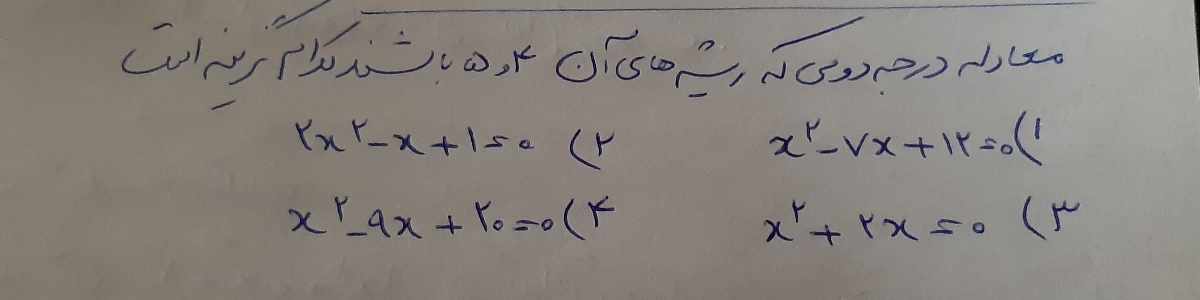 معادله درجه دومی که ریشه های آن ۴ و ۵ باشند کدام گزینه است
۱) x²-۷x+۱۲=۰ ۲) ۲x²-x+۱=۰
۳) x²+۲x=۰ ۴) x²-۹x+۲۰=۰